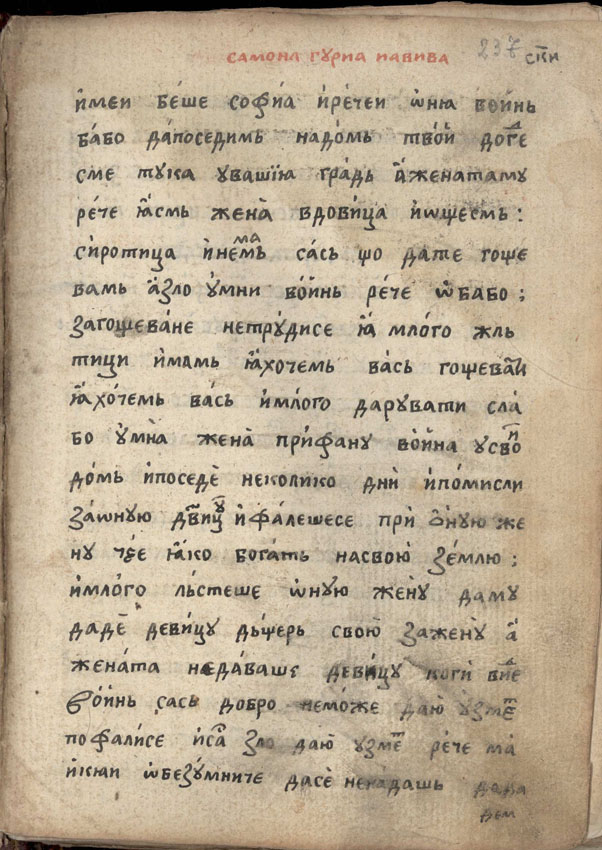 самона гуриа иавива 237 скⷩ҇и
и҆меи бе́ше софи́а и҆ре́чеи ѡ҆нїа во́инь
ба́бо да́поседимь на́до́мь тво́й доⷣге
сме тука у҆вашїю гра́дь а҆́жената́му
ре́че ꙗ҆́смь жена̀ вдови́ца и҆ѡщесмъ :
си́ротица и҆́неⷨама́ са́сь що да́те гоще
вамь а҆́зло у҆мни во́инь ре́че ѡ҆ ба́бо ;
за́гощева́не нетру́дисе ꙗ҆́ мло́го жль
тици и҆́мамь ꙗ҆́хочемь ва́сь гощевати
ꙗ҆́хо́чемь ва́сь и҆мло́го даруватѝ сла
бо у҆мна̀ жена̀ при́фану во́ина у҆своⷤи
до́мь и҆поседѐ неколико днѝ и҆по́мисли
за́ѡ҆ную двⷪ҇ицу и҆фа́лешесе прѝ ѻ҆́ную же
ну че́е ꙗ҆́ко бога́ть на́своꙋ зе́млю ;
и҆мло́го ль́стеше ѡ҆ную жену̀ да́му
даде̑ деви́цу дь́щерь свою за́жену̀ а҆́
жена́та нѐда́ваше деви́цу коги́ виⷣе
во́инь са́сь добро нѐмо́же даю у҆зме
по фа́лисе и҆са̑ зло да́ю у҆зме ре́че ма
и҆цїи ѡ҆безу́мниче да́се нена́дашь деда
дем